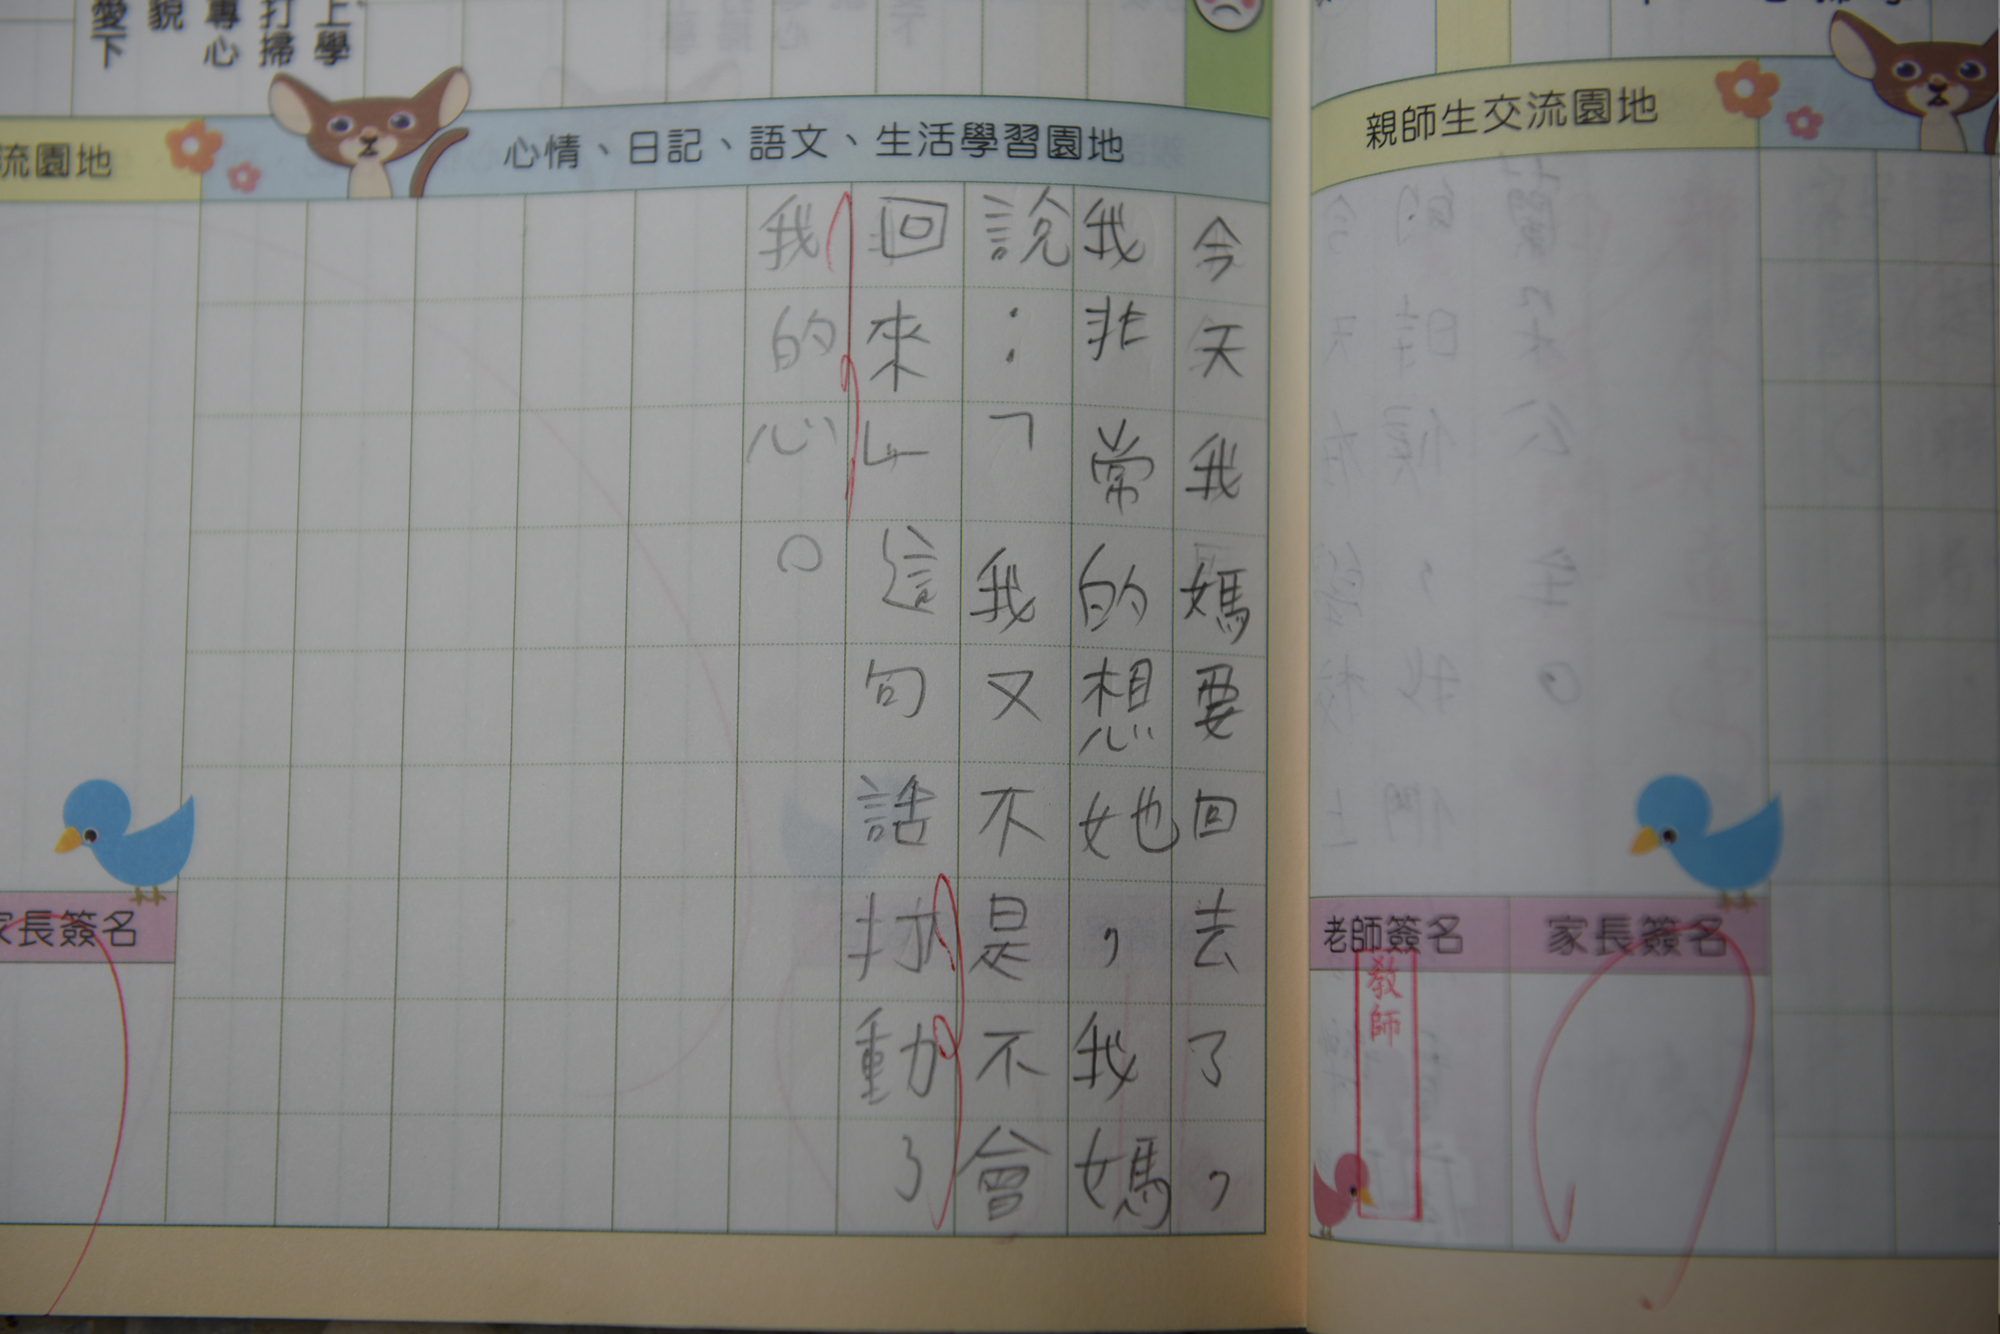 上學
打掃
專心
貌
愛下
流園地
心情、日記、語文、生活學習園地
今天我媽要回去了，
我非常的想她，我媽
說：「我又不是不會
回來」這句話打動了
我的心。
家長簽名
親師生交流園地
老師簽名
家長簽名
教師